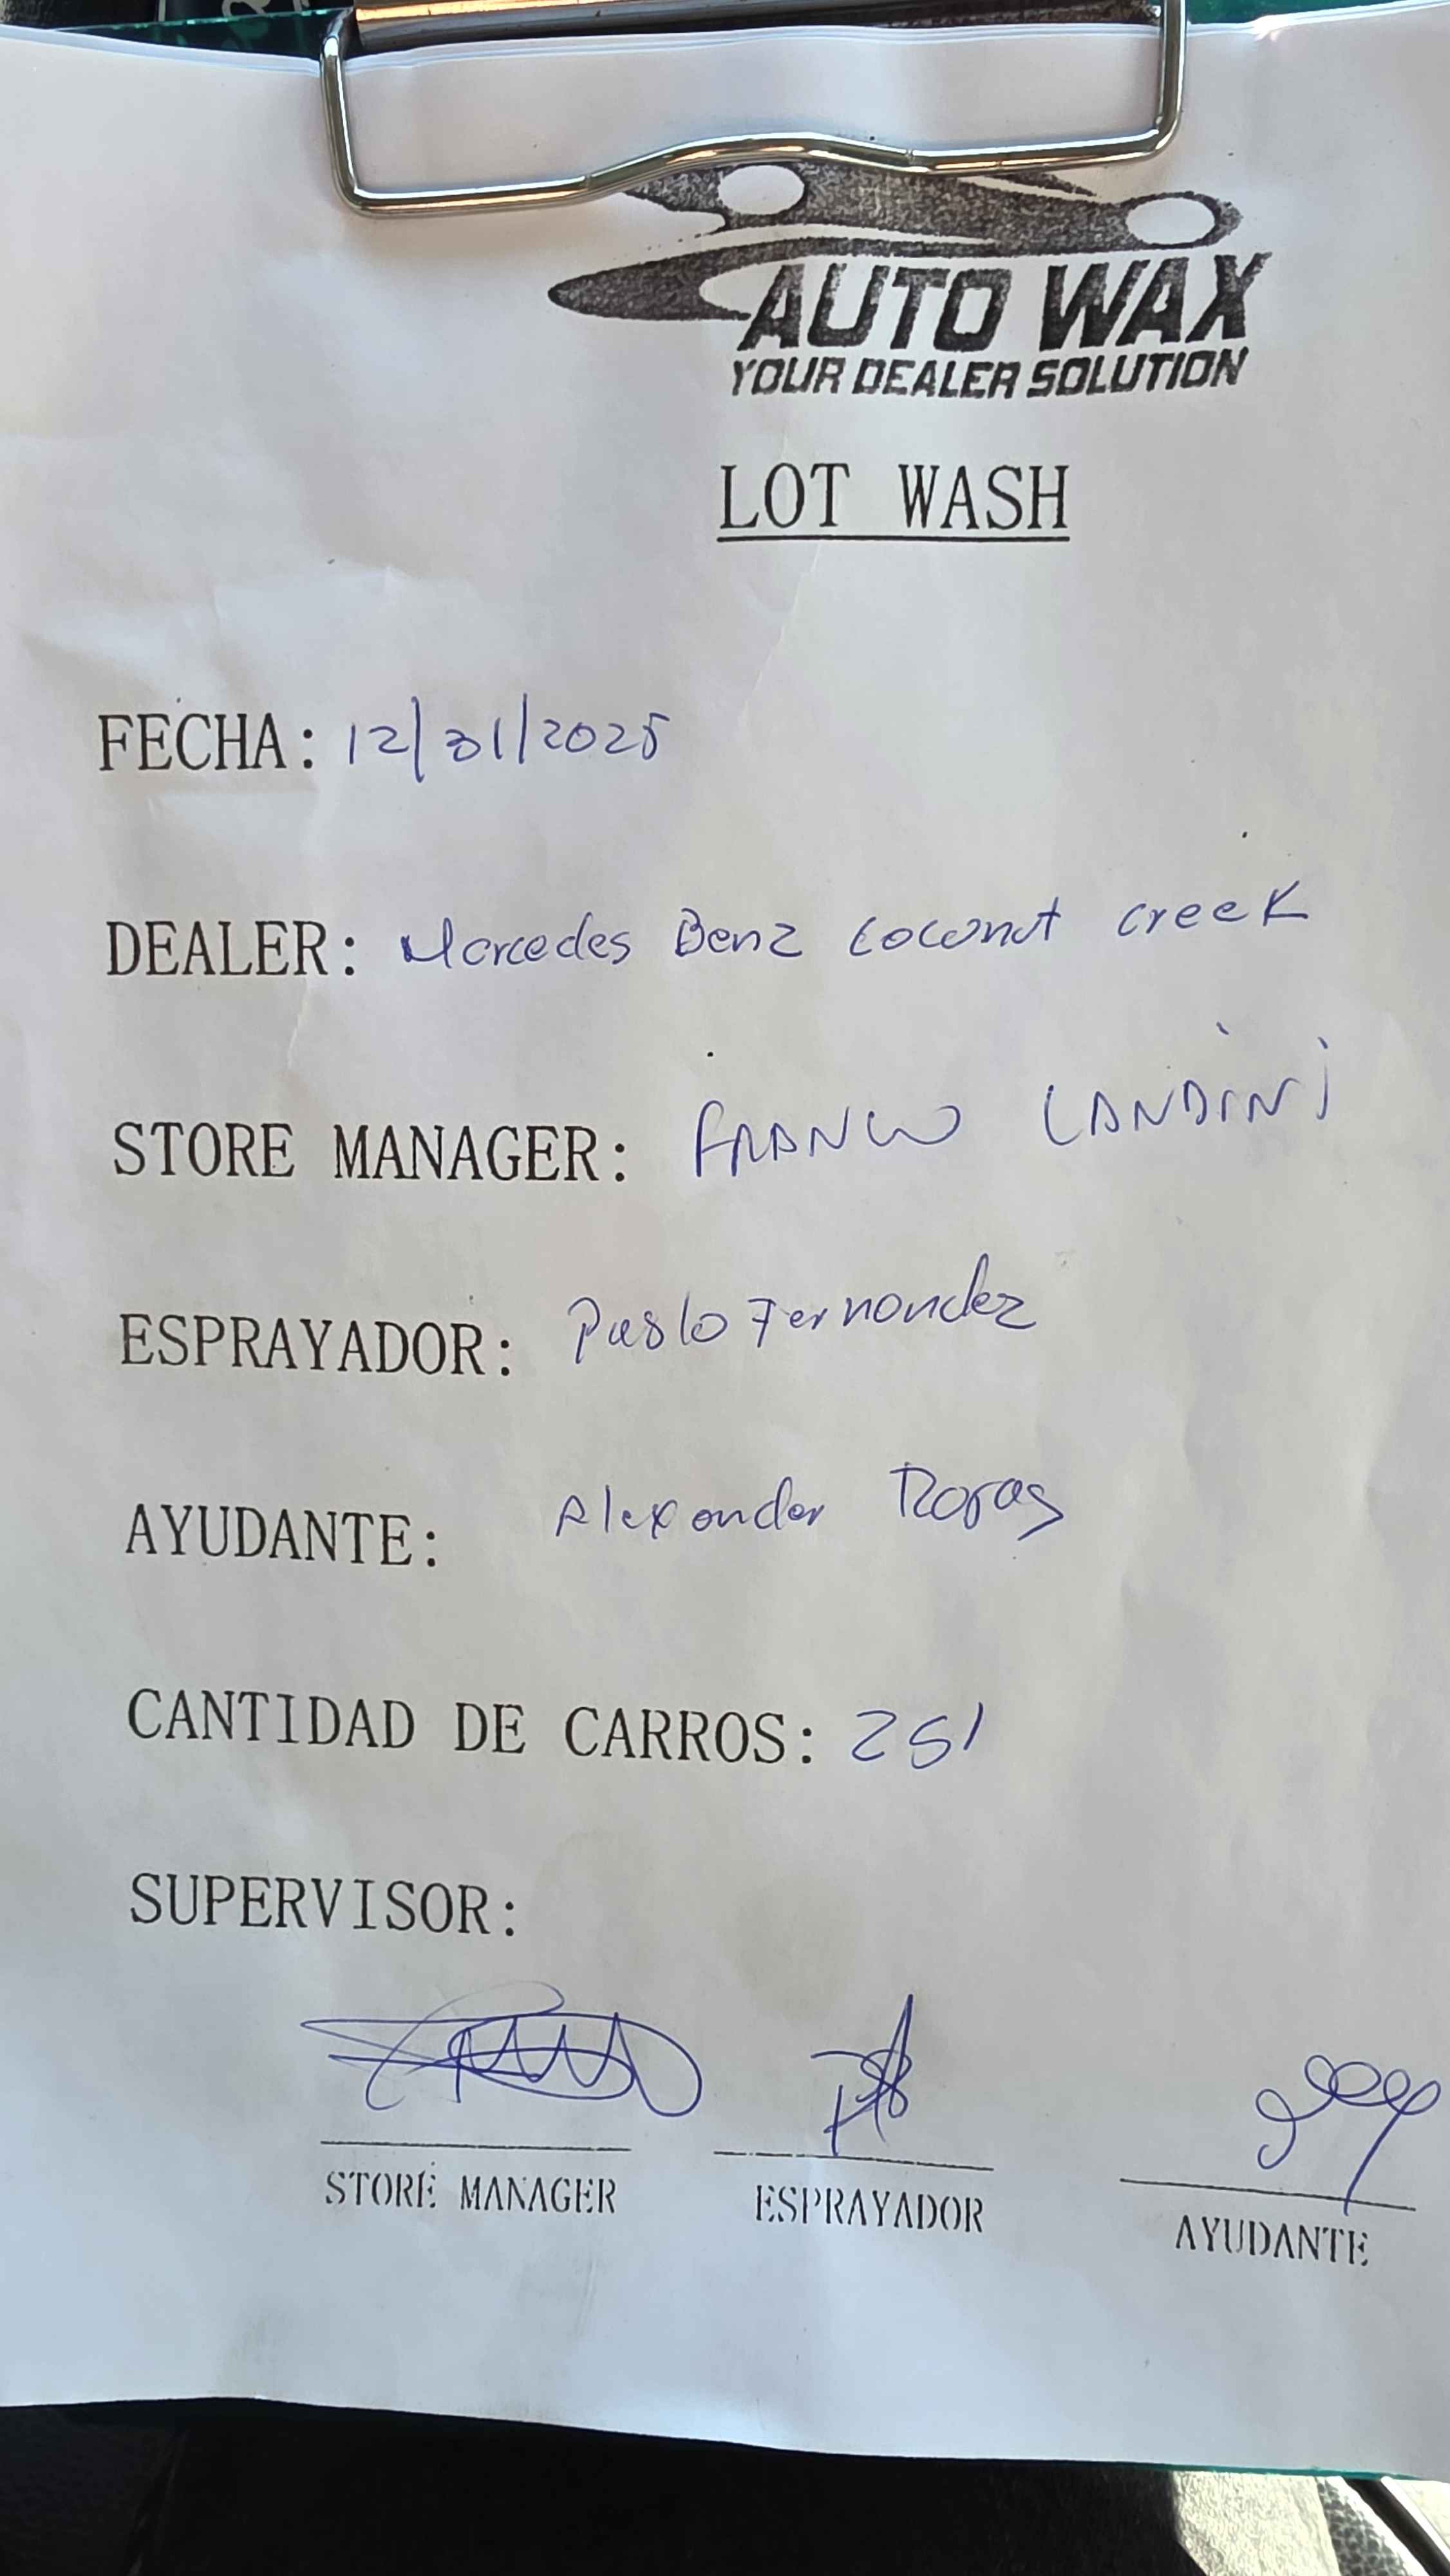 AUTO WAX
YOUR DEALER SOLUTION
LOT WASH
FECHA: 12/31/2025
DEALER: Mercedes Benz Coconut Creek
STORE MANAGER: FRANCO LANDINI
ESPRAYADOR: Pablo Fernandez
AYUDANTE: Alexander Rojas
CANTIDAD DE CARROS: 251
SUPERVISOR:
STORE MANAGER ESPRAYADOR AYUDANTE